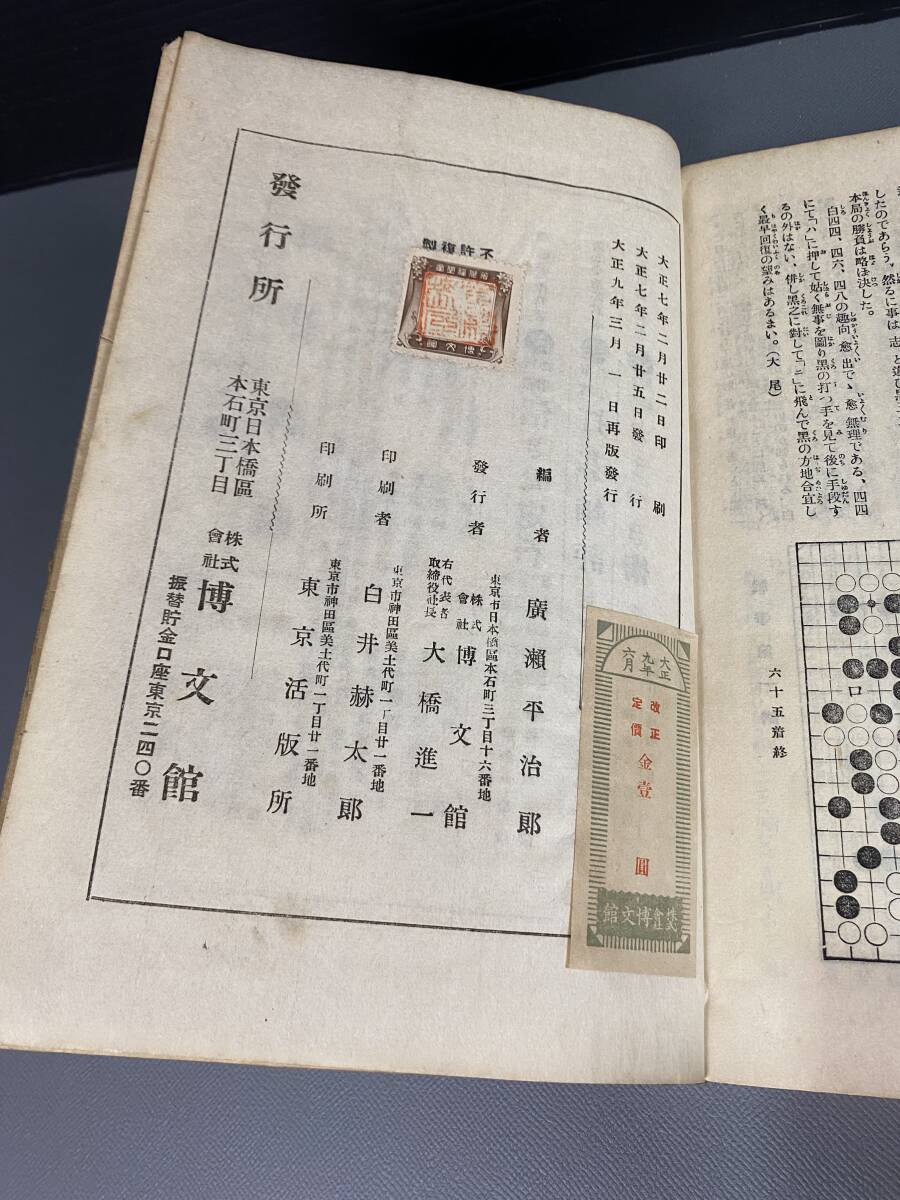 したのであらう、然るに事は志と
本局の勝負は略ほ決した。
白四四、四六、四八の趣向愈出でゝ愈無理である、四四
にて「ハ」に押して姑く無事を圖り黑の打つ手を見て後に手段す
るの外はない、併し黑之に對して「ニ」に飛んで黑の方地合宜し
く最早回復の望みはあるまい。(大尾)
六十五着終
ロ
大正七年二月廿二日印刷
大正七年二月廿五日發行
大正九年三月一日再版發行
不許複製
博文館
編者 廣瀨平治郎
東京市日本橋區本石町三丁目十六番地
發行者 株式會社 博文館
右代表者 取締役社長 大橋進一
東京市神田區美土代町二丁目廿一番地
印刷者 白井赫太郎
東京市神田區美土代町二丁目廿一番地
印刷所 東京活版所
發行所
東京日本橋區
本石町三丁目
株式會社 博文館
振替貯金口座東京二四〇番
大正九年六月
改正定價 金壹圓
株式會社博文館